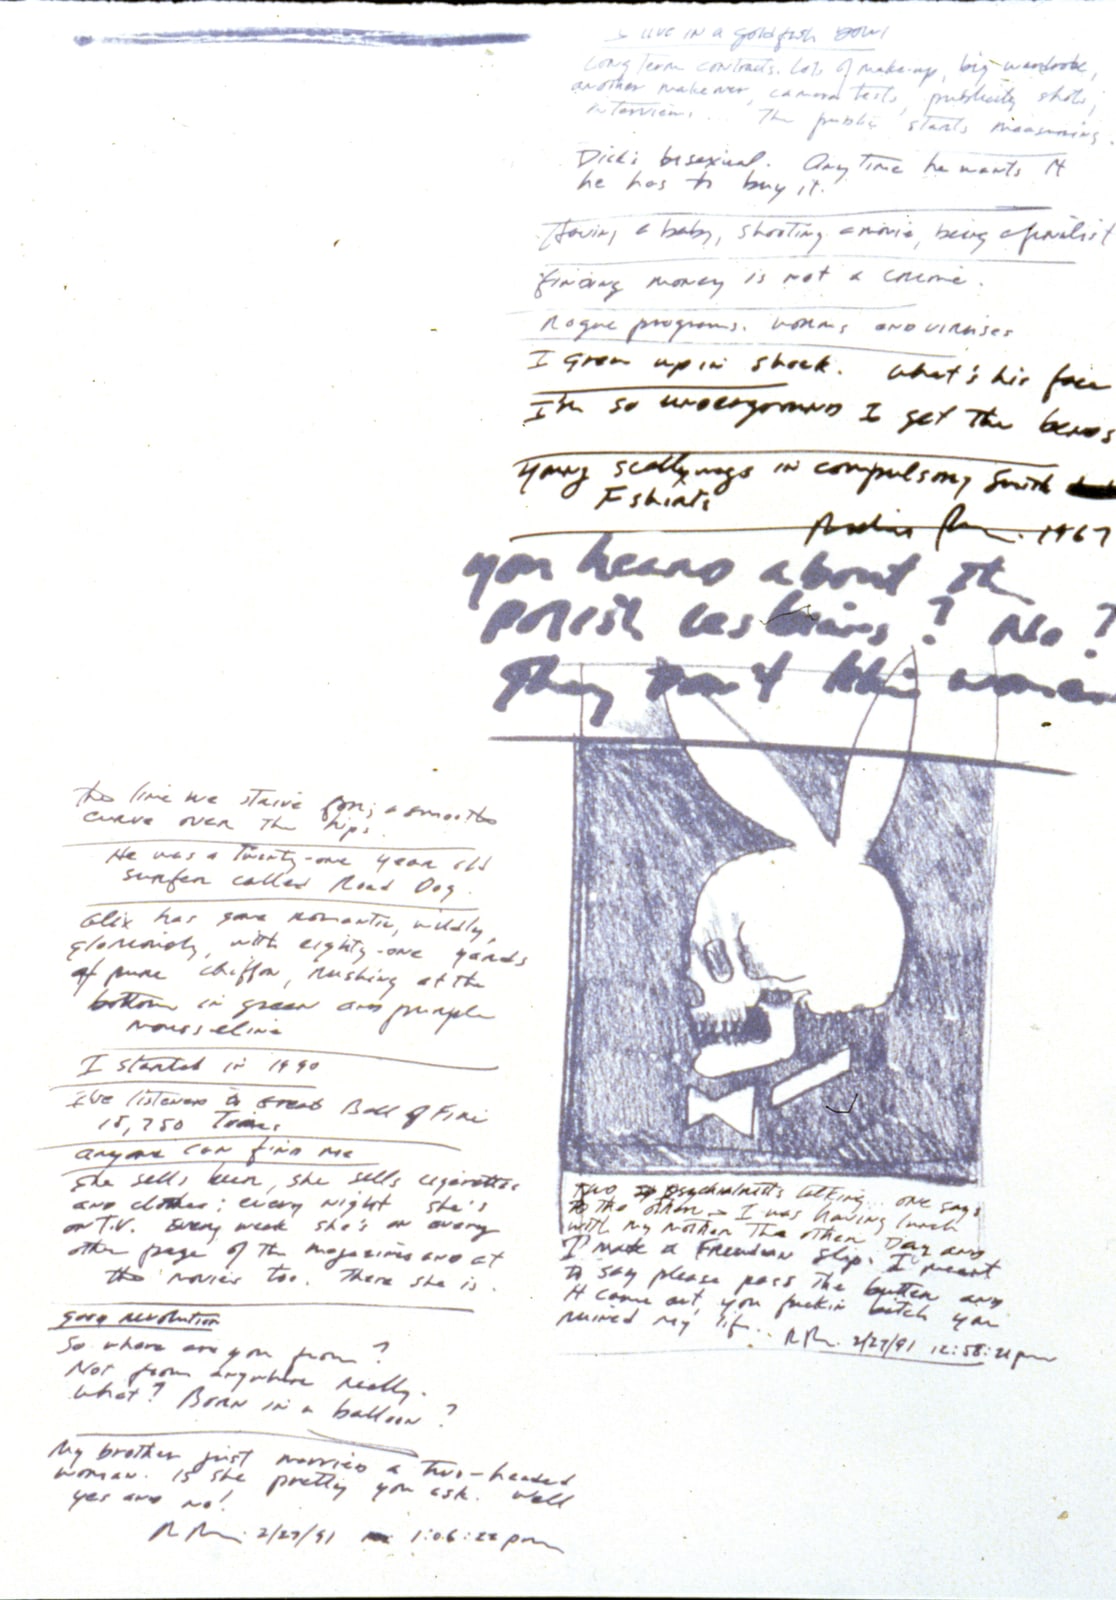 I live in a goldfish bowl
Long term contracts. Lots of make-up, big wardrobe,
another makeover, camera tests, publicity shots,
interviews... The public starts measuring.
Dick's bisexual. Anytime he wants it
he has to buy it.
Having a baby, shooting a movie, being a finalist
finding money is not a crime.
Rogue programs. worms and viruses
I grew up in shock. What's his face
I'm so underground I get the bends
young scallywags in compulsory Smith
F shirts
1967
you heard about the
polish lesbians? No?
They don't like women
the line we strive for; a smooth
curve over the hips.
He was a twenty-one year old
surfer called Road Dog.
Alix has gone romantic, wildly,
gloriously, with eighty-one yards
of pure chiffon, rushing at the
bottom in green and purple
mousseline
I started in 1990
I've listened to Great Ball of Fire
15,750 Times
anyone can find me
she sells beer, she sells cigarettes
and clothes; every night she's
on T.V. Every week she's on every
other page of the magazines and at
the movies too. There she is.
revolution
So where are you from?
Not from anywhere really.
what? Born in a balloon?
My brother just married a two-headed
woman. Is she pretty you ask. Well
yes and no!
2/27/91 1:06:22 pm
two psychiatrists talking... one says
to the other I was having lunch
with my mother the other day and
I made a Freudian slip. I meant
to say please pass the butter and
it came out, you fuckin bitch you
ruined my life..
2/27/91 12:58:21 pm